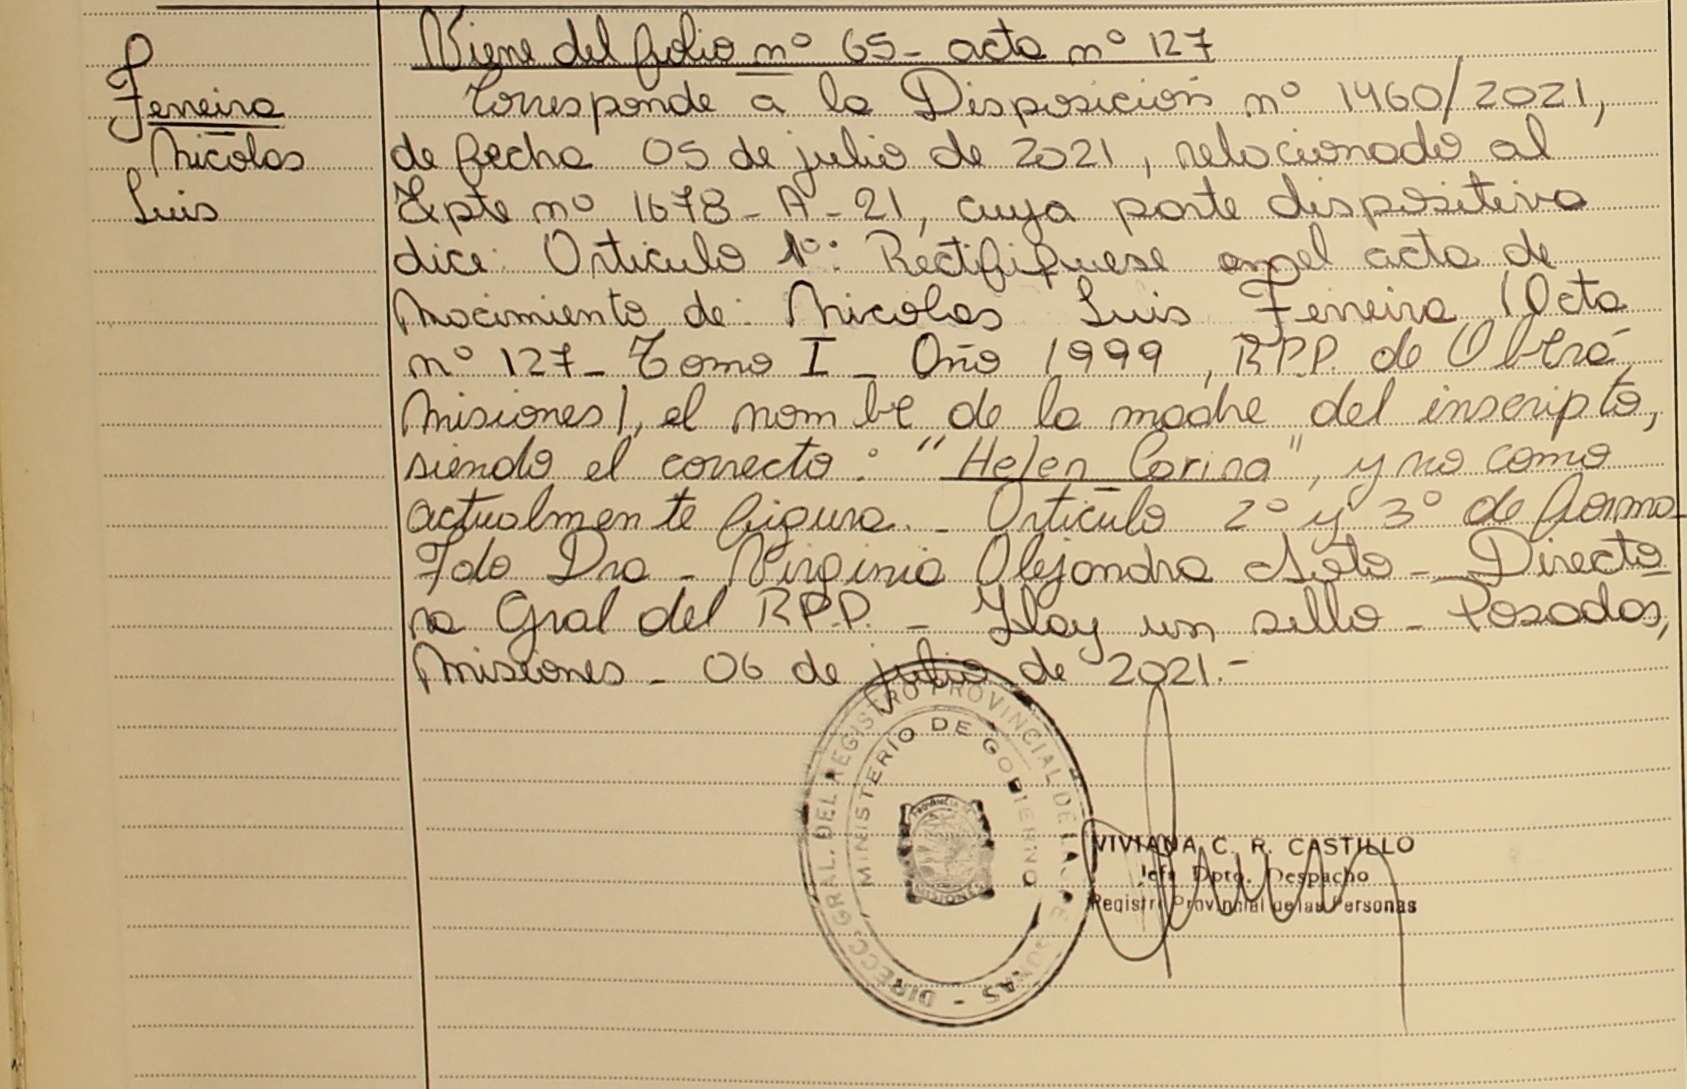 Ferreira
Nicolas
Luis
Viene del folio nº 65- acta nº 127
Corresponde a la Disposición nº 1460/2021,
de fecha 05 de julio de 2021, relacionado al
Expte nº 1678-A-21, cuya parte dispositiva
dice: Articulo 1º: Rectifiquese en el acta de
Nacimiento de: Nicolas Luis Ferreira (Acta
nº 127- Tomo I - Año 1999, R.P.P. de Oberá,
Misiones), el nombe de la madre del inscripto,
siendo el correcto: "Helen Carina", y no como
actualmente figura.- Articulo 2º y 3º de forma
Fdo Dra - Virginia Alejandra Soto - Directo
ra Gral del R.P.P. - Hay un sello - Posadas,
Misiones - 06 de julio de 2021.-
DIRECC. GRAL. DEL REGISTRO PROVINCIAL DE LAS PERSONAS -
MINISTERIO DE GOBIERNO
VIVIANA C. R. CASTILLO
Jefa Dpto. Despacho
Registro Provincial de las Personas